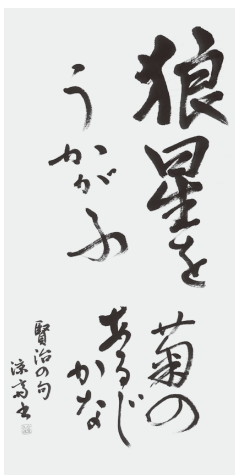 狼星を
うかがふ
菊の
あるじ
かな
賢治の句
涼斎書